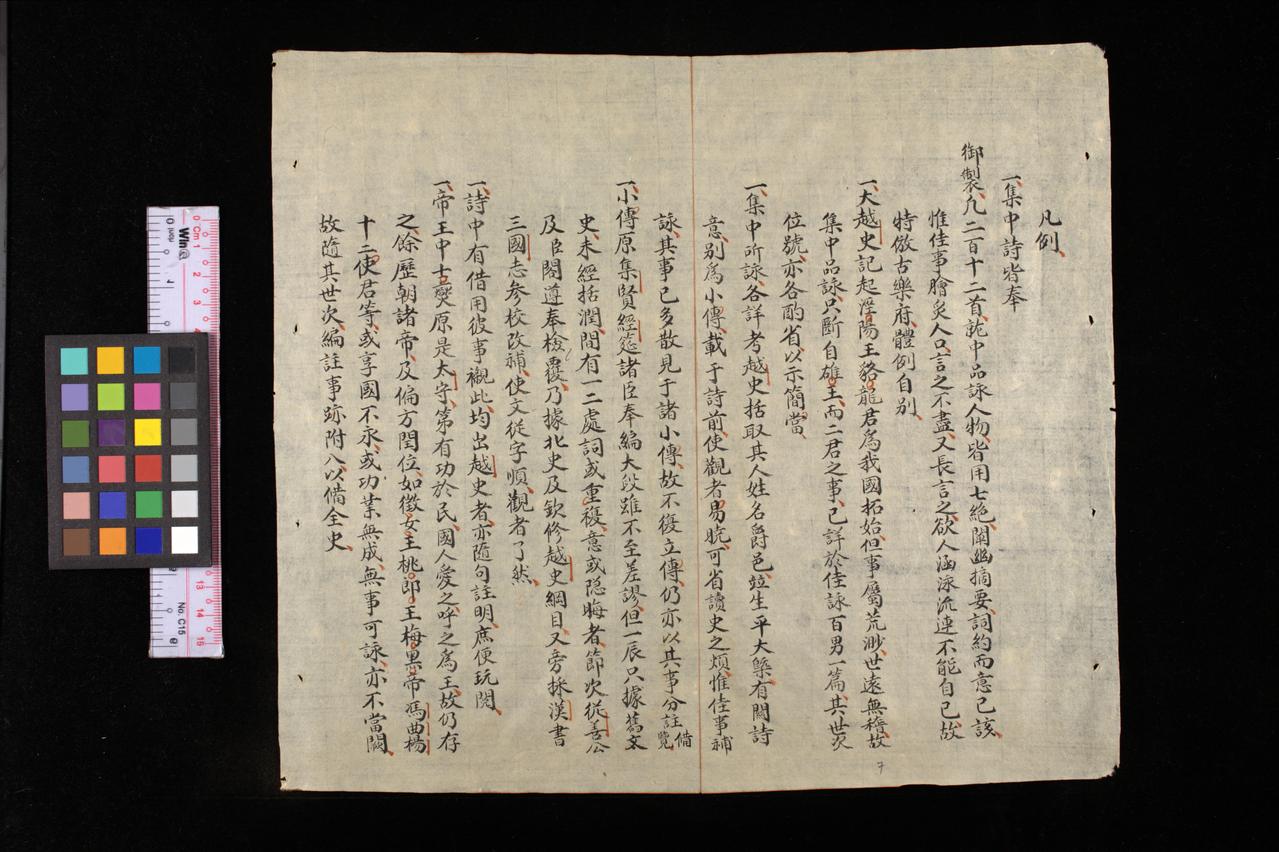 凡例
一集中詩皆奉
御製凡二百十二首訛中品詠人物皆用七絶闡幽摘要詞約而意已該
惟佳事膾炙人口言之不盡又長言之欲人涵泳流連不能自已故
特倣古樂府體例自別
一大越史記起涇陽王貉龍君為我國拓始但事屬荒渺世遠無稽故
集中品詠只斷自雄王而二君之事已詳於佳詠百男一篇其世次
位號亦各酌省以示簡當
一集中所詠各詳考越史括取其人姓名爵邑竝生平大槩有關詩
意別為小傳載于詩前使觀者易曉可省讀史之煩惟佳事補
詠其事已多散見于諸小傳故不復立傳仍亦以其事分註備覽
一小傳原集賢經筵諸臣奉編大段雖不至差謬但一辰只據舊文
史未經括潤間有一二處詞或重複意或隐晦者節次從善公
及臣閣遵奉檢覆乃據北史及欽修越史綱目又旁採漢書
三國志參校改補使文從字順觀者了然
一詩中有借用彼事襯此均出越史者亦隨句註明庶便玩閱
一帝王中士燮原是太守第有功於民國人愛之呼之為王故仍存
之餘歷朝諸帝及偏方閏位如徵女王桃郎王梅黑帝馮曲楊
十二使君等或享國不永或功業無成無事可詠亦不當闕
故隨其世次編註事跡附入以備全史
7
Cm 1 2 3 4
13 14 15
Win@
No. C15